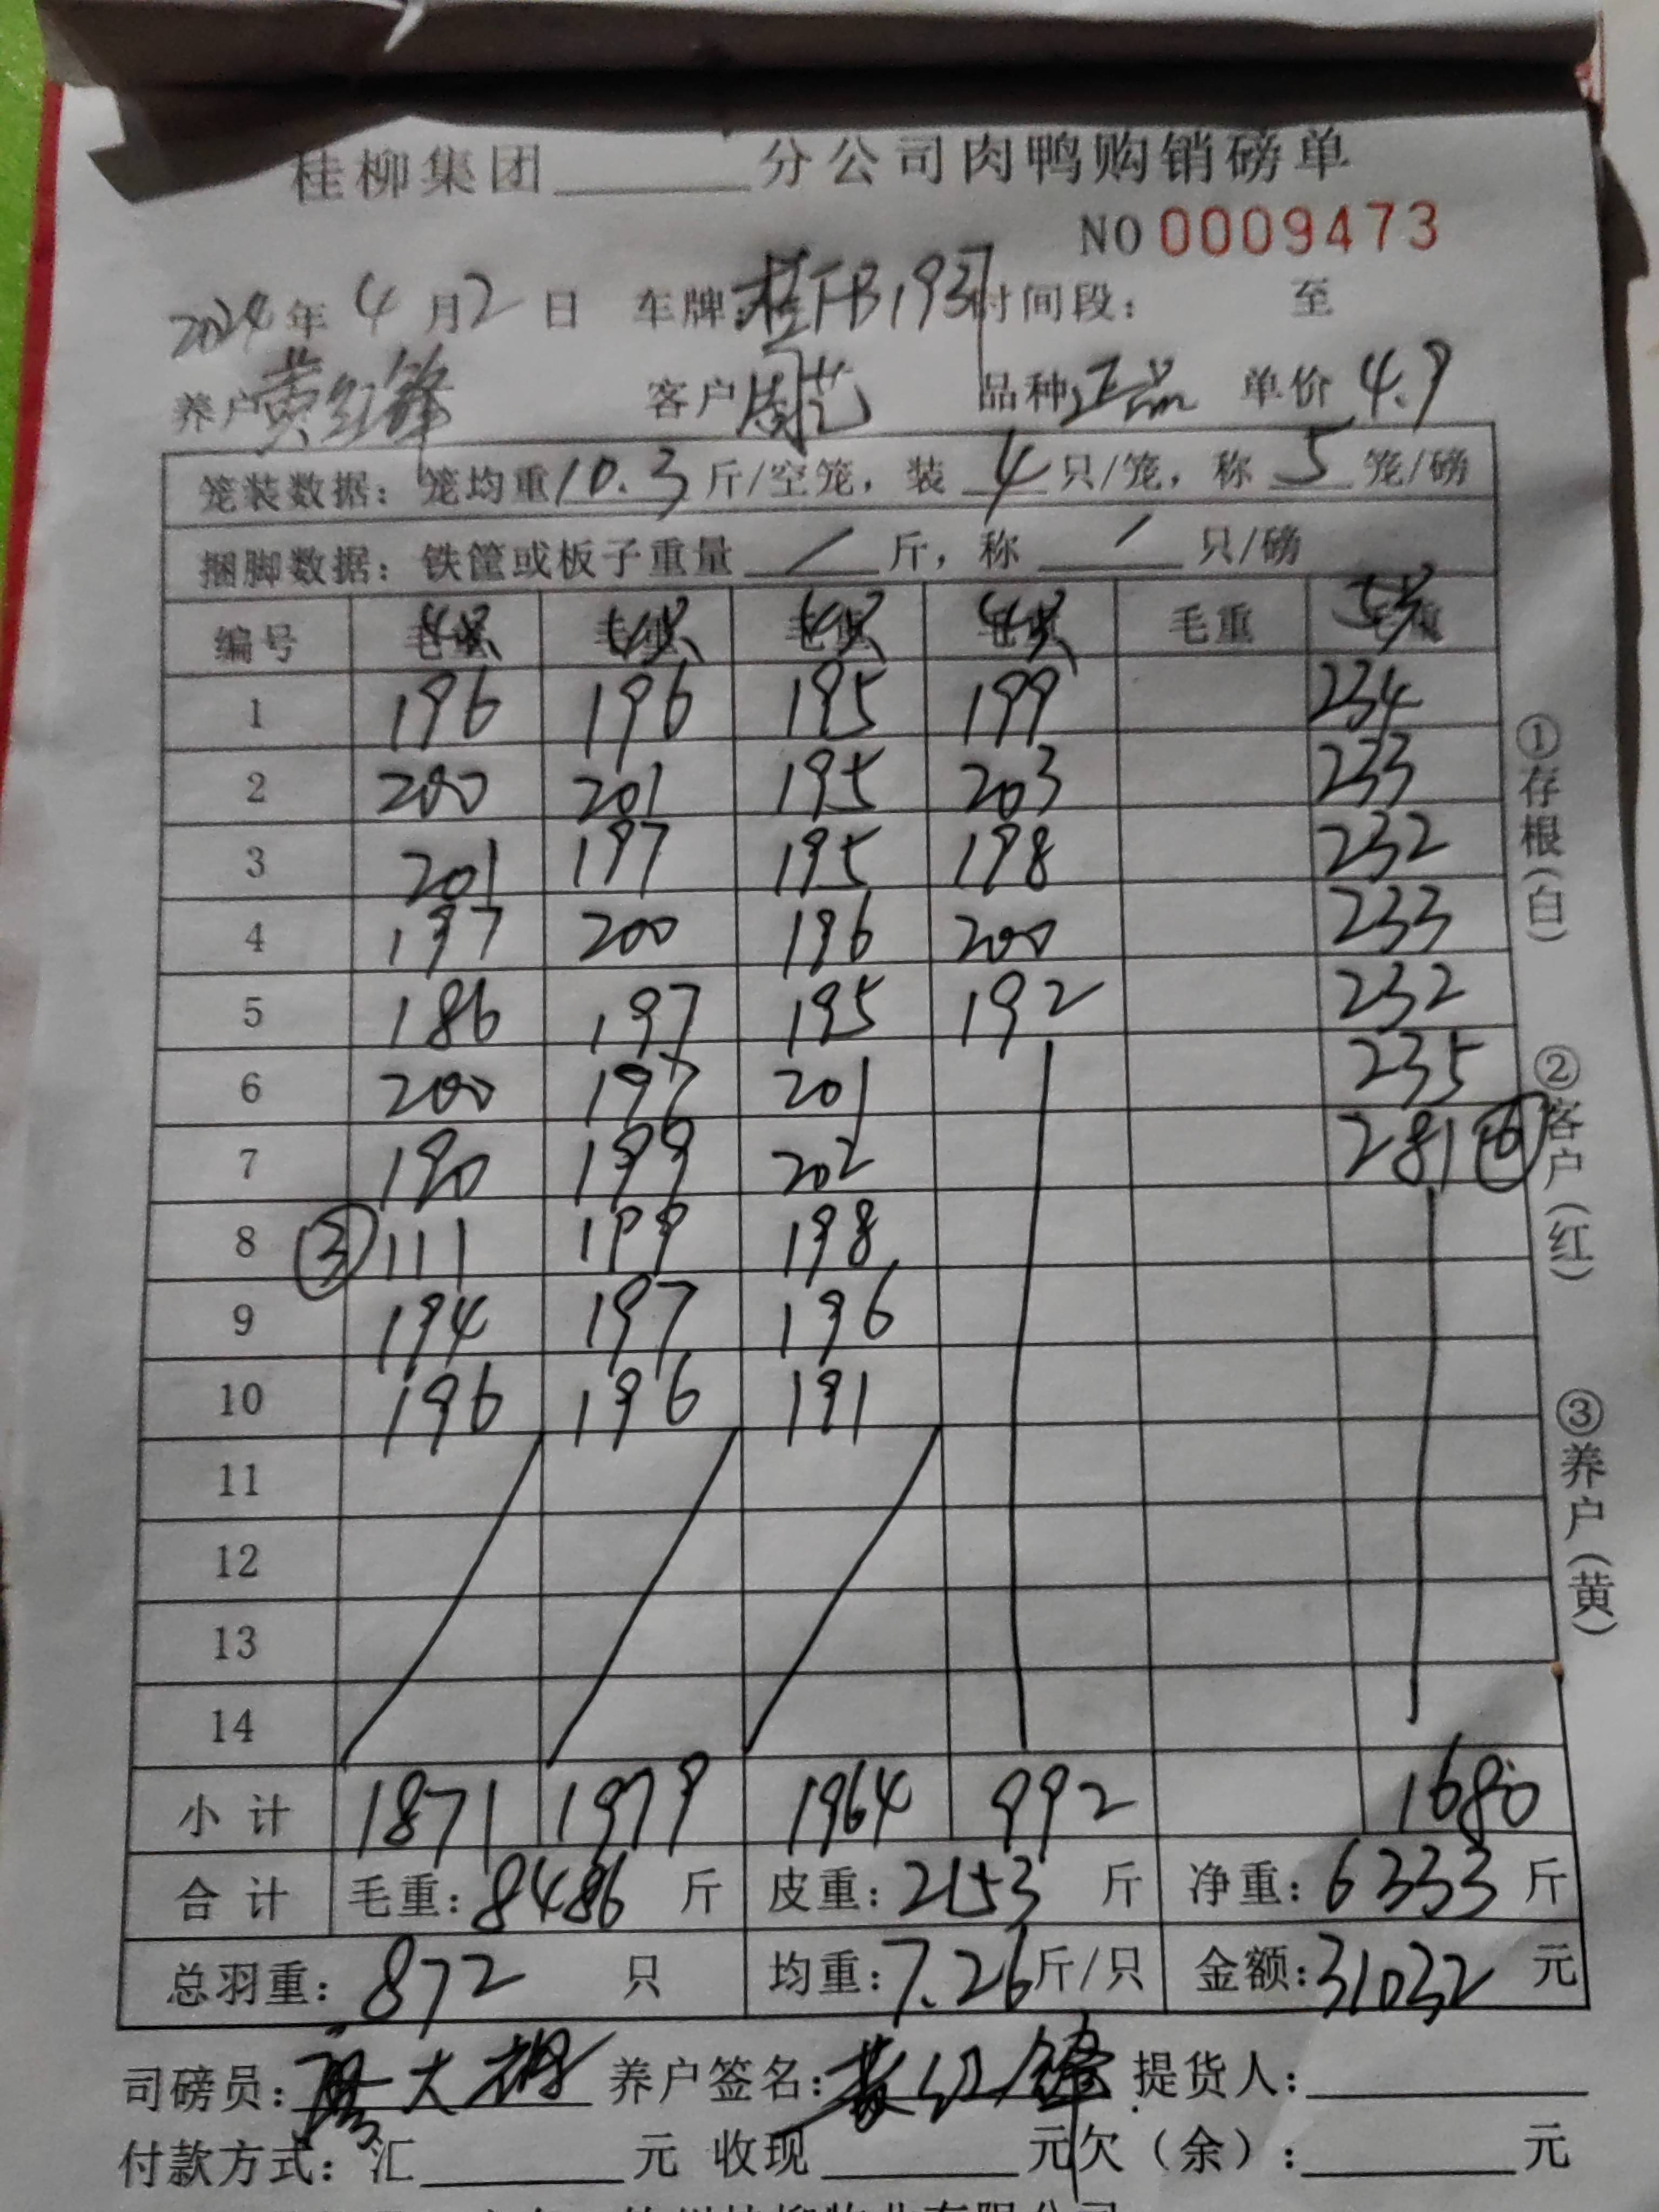 桂柳集团______分公司肉鸭购销磅单
NO 0009473
2024年 4月2日 车牌:桂FB1937 时间段: 至
养户 黄红锋 客户 周艺 品种 正品 单价 4.9
笼装数据: 笼均重10.3斤/空笼, 装 4 只/笼, 称 5 笼/磅
捆脚数据: 铁筐或板子重量 / 斤, 称 / 只/磅
编号 4只 4只 4只 4只 毛重 5只
1 196 196 195 199 234
2 200 201 195 203 233
3 201 197 195 198 232
4 197 200 196 200 233
5 186 197 195 192 232
6 200 197 201 235
7 190 199 202 281 ⑥
8 ③ 111 199 198
9 194 197 196
10 196 196 191
11
12
13
14
小计 1871 1979 1964 992 1680
合计 毛重: 8486 斤 皮重: 2153 斤 净重: 6333 斤
总羽重: 872 只 均重: 7.26斤/只 金额: 31032 元
司磅员: 大 养户签名: 黄红锋 提货人:
付款方式: 汇______元 收现______元欠(余):______元
①存根(白)
②客户(红)
③养户(黄)